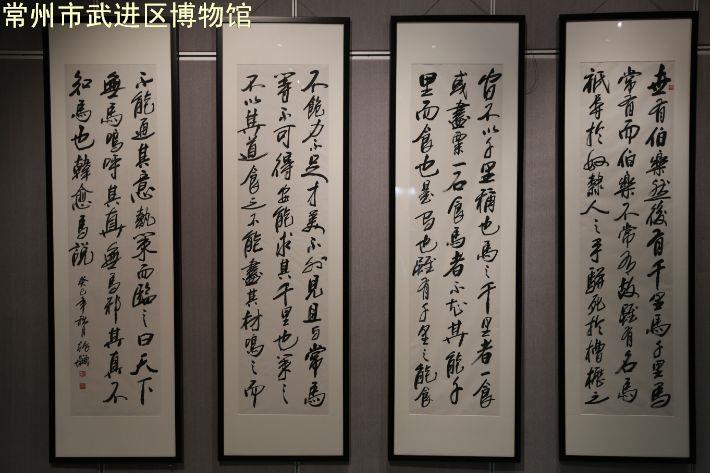 常州市武进区博物馆
世有伯樂然後有千里馬千里馬
常有而伯樂不常有故雖有名馬
祇辱於奴隸人之手駢死於槽櫪之
間不以千里稱也馬之千里者一食
或盡粟一石食馬者不知其能千
里而食也是馬也雖有千里之能食
不飽力不足才美不外見且与常馬
等不可得安能求其千里也策之
不以其道食之不能盡其材鳴之而
不能通其意執策而臨之曰天下
無馬嗚呼其真無馬邪其真不
知馬也韓愈馬說
癸巳年